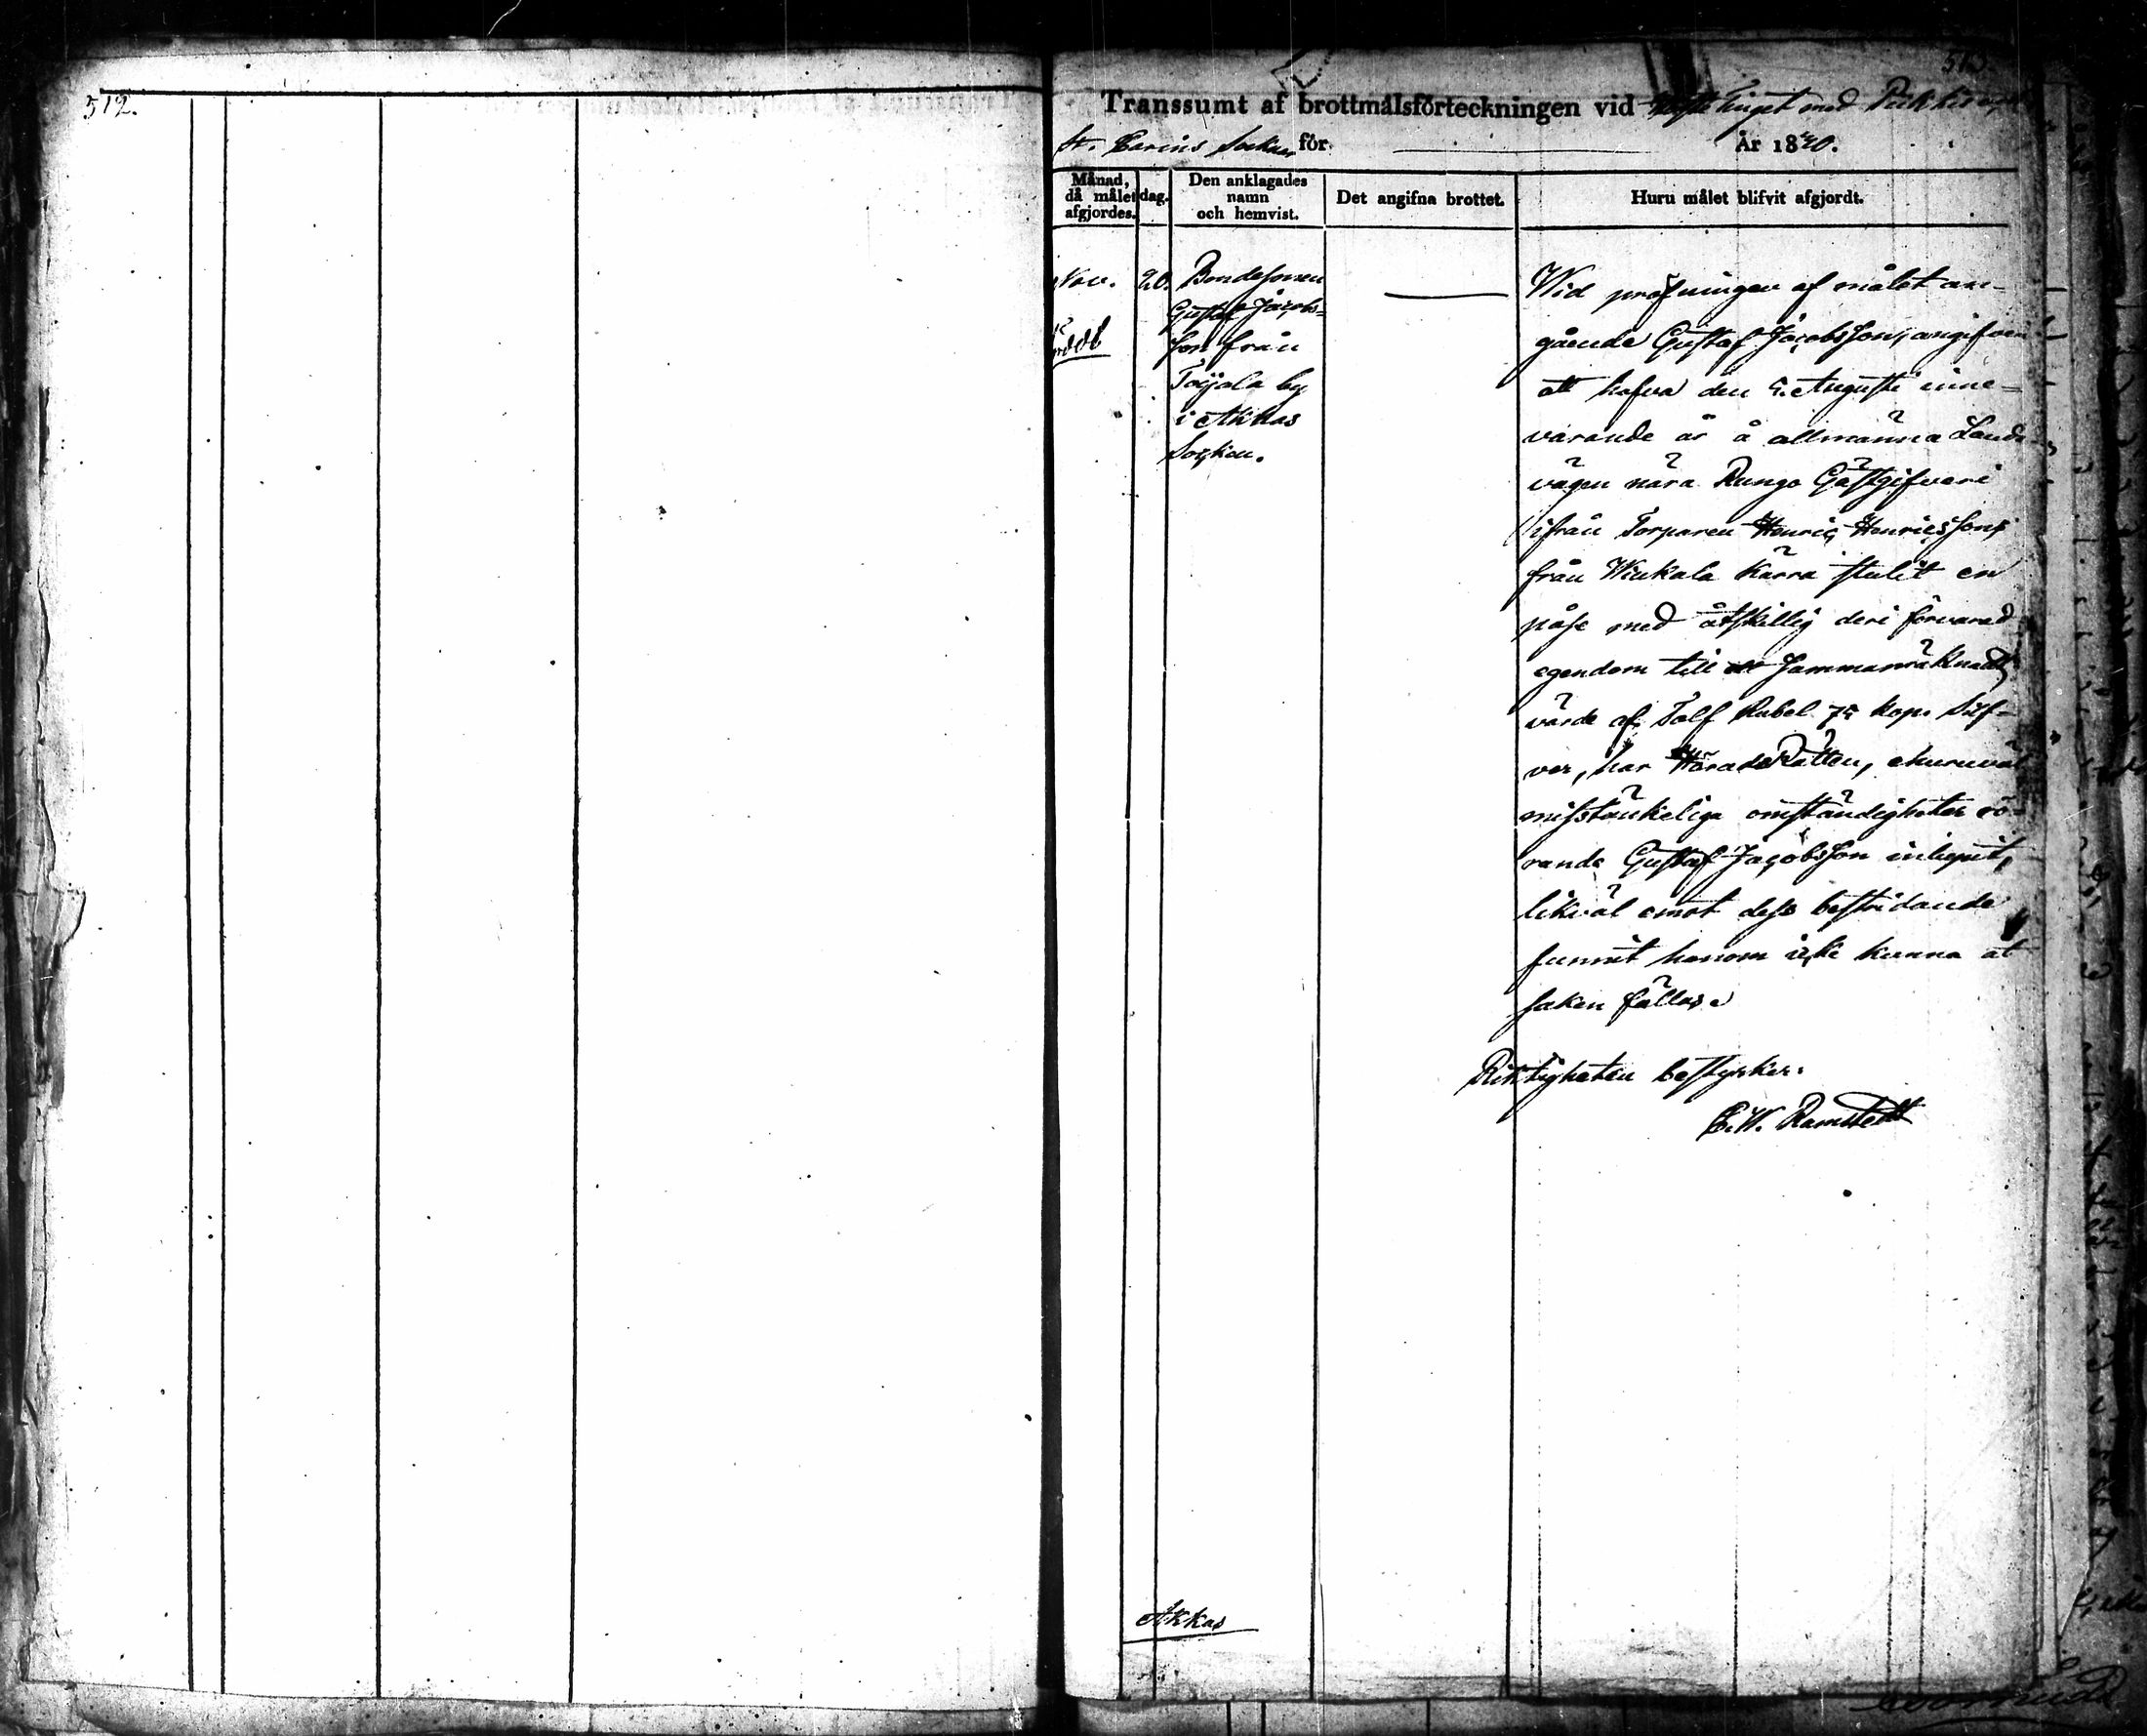 512.
513.
Transsumt af brottmålsförteckningen vid Höste tinget med Piikkis och
St. Carins Socknar för År 1840.
Månad, då målet afgjordes.
dag.
Den anklagades namn och hemvist.
Det angifna brottet.
Huru målet blifvit afgjordt.
Nov. 20.
Bondesonen
Gustaf Jacobs-
son från
Toijala by
i Akkas
Socken.
Wid pröfningen af målet an-
gående Gustaf Jacobsson, angifven
att hafva den 5. Augusti inne-
varande år å allmänna Lands-
vägen nära Rungo Gästgifveri
ifrån Torparen Henric Henricssons
från Wiukala kärra stulit en
påse med åtskillig deri förvarad
egendom till sammanräknadt
värde af Tolf Rubel 75 kop. Silf-
ver, har HäradsRätten, ehuruväl
misstänkeliga omständigheter rö-
rande Gustaf Jacobsson inlupit,
likväl emot dess bestridande
funnit honom icke kunna åt
saken fällas.
Riktigheten bestyrker:
C. W. Ramstedt
Akkas